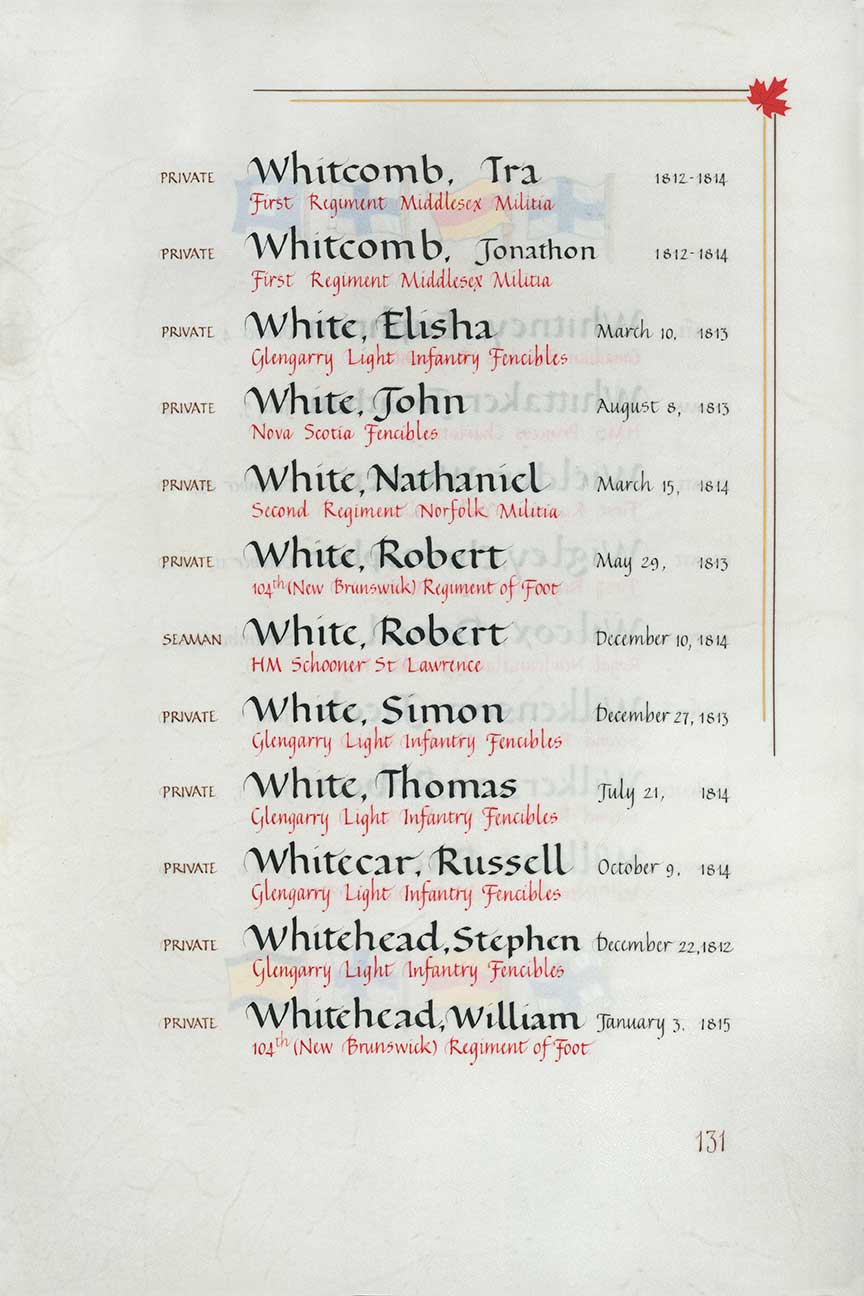 PRIVATE Whitcomb, Ira 1812-1814
First Regiment Middlesex Militia
PRIVATE Whitcomb, Jonathon 1812-1814
First Regiment Middlesex Militia
PRIVATE White, Elisha March 10, 1813
Glengarry Light Infantry Fencibles
PRIVATE White, John August 8, 1813
Nova Scotia Fencibles
PRIVATE White, Nathaniel March 15, 1814
Second Regiment Norfolk Militia
PRIVATE White, Robert May 29, 1813
104th (New Brunswick) Regiment of Foot
SEAMAN White, Robert December 10, 1814
HM Schooner St Lawrence
PRIVATE White, Simon December 27, 1813
Glengarry Light Infantry Fencibles
PRIVATE White, Thomas July 21, 1814
Glengarry Light Infantry Fencibles
PRIVATE Whitecar, Russell October 9, 1814
Glengarry Light Infantry Fencibles
PRIVATE Whitehead, Stephen December 22, 1812
Glengarry Light Infantry Fencibles
PRIVATE Whitehead, William January 3, 1815
104th (New Brunswick) Regiment of Foot
131